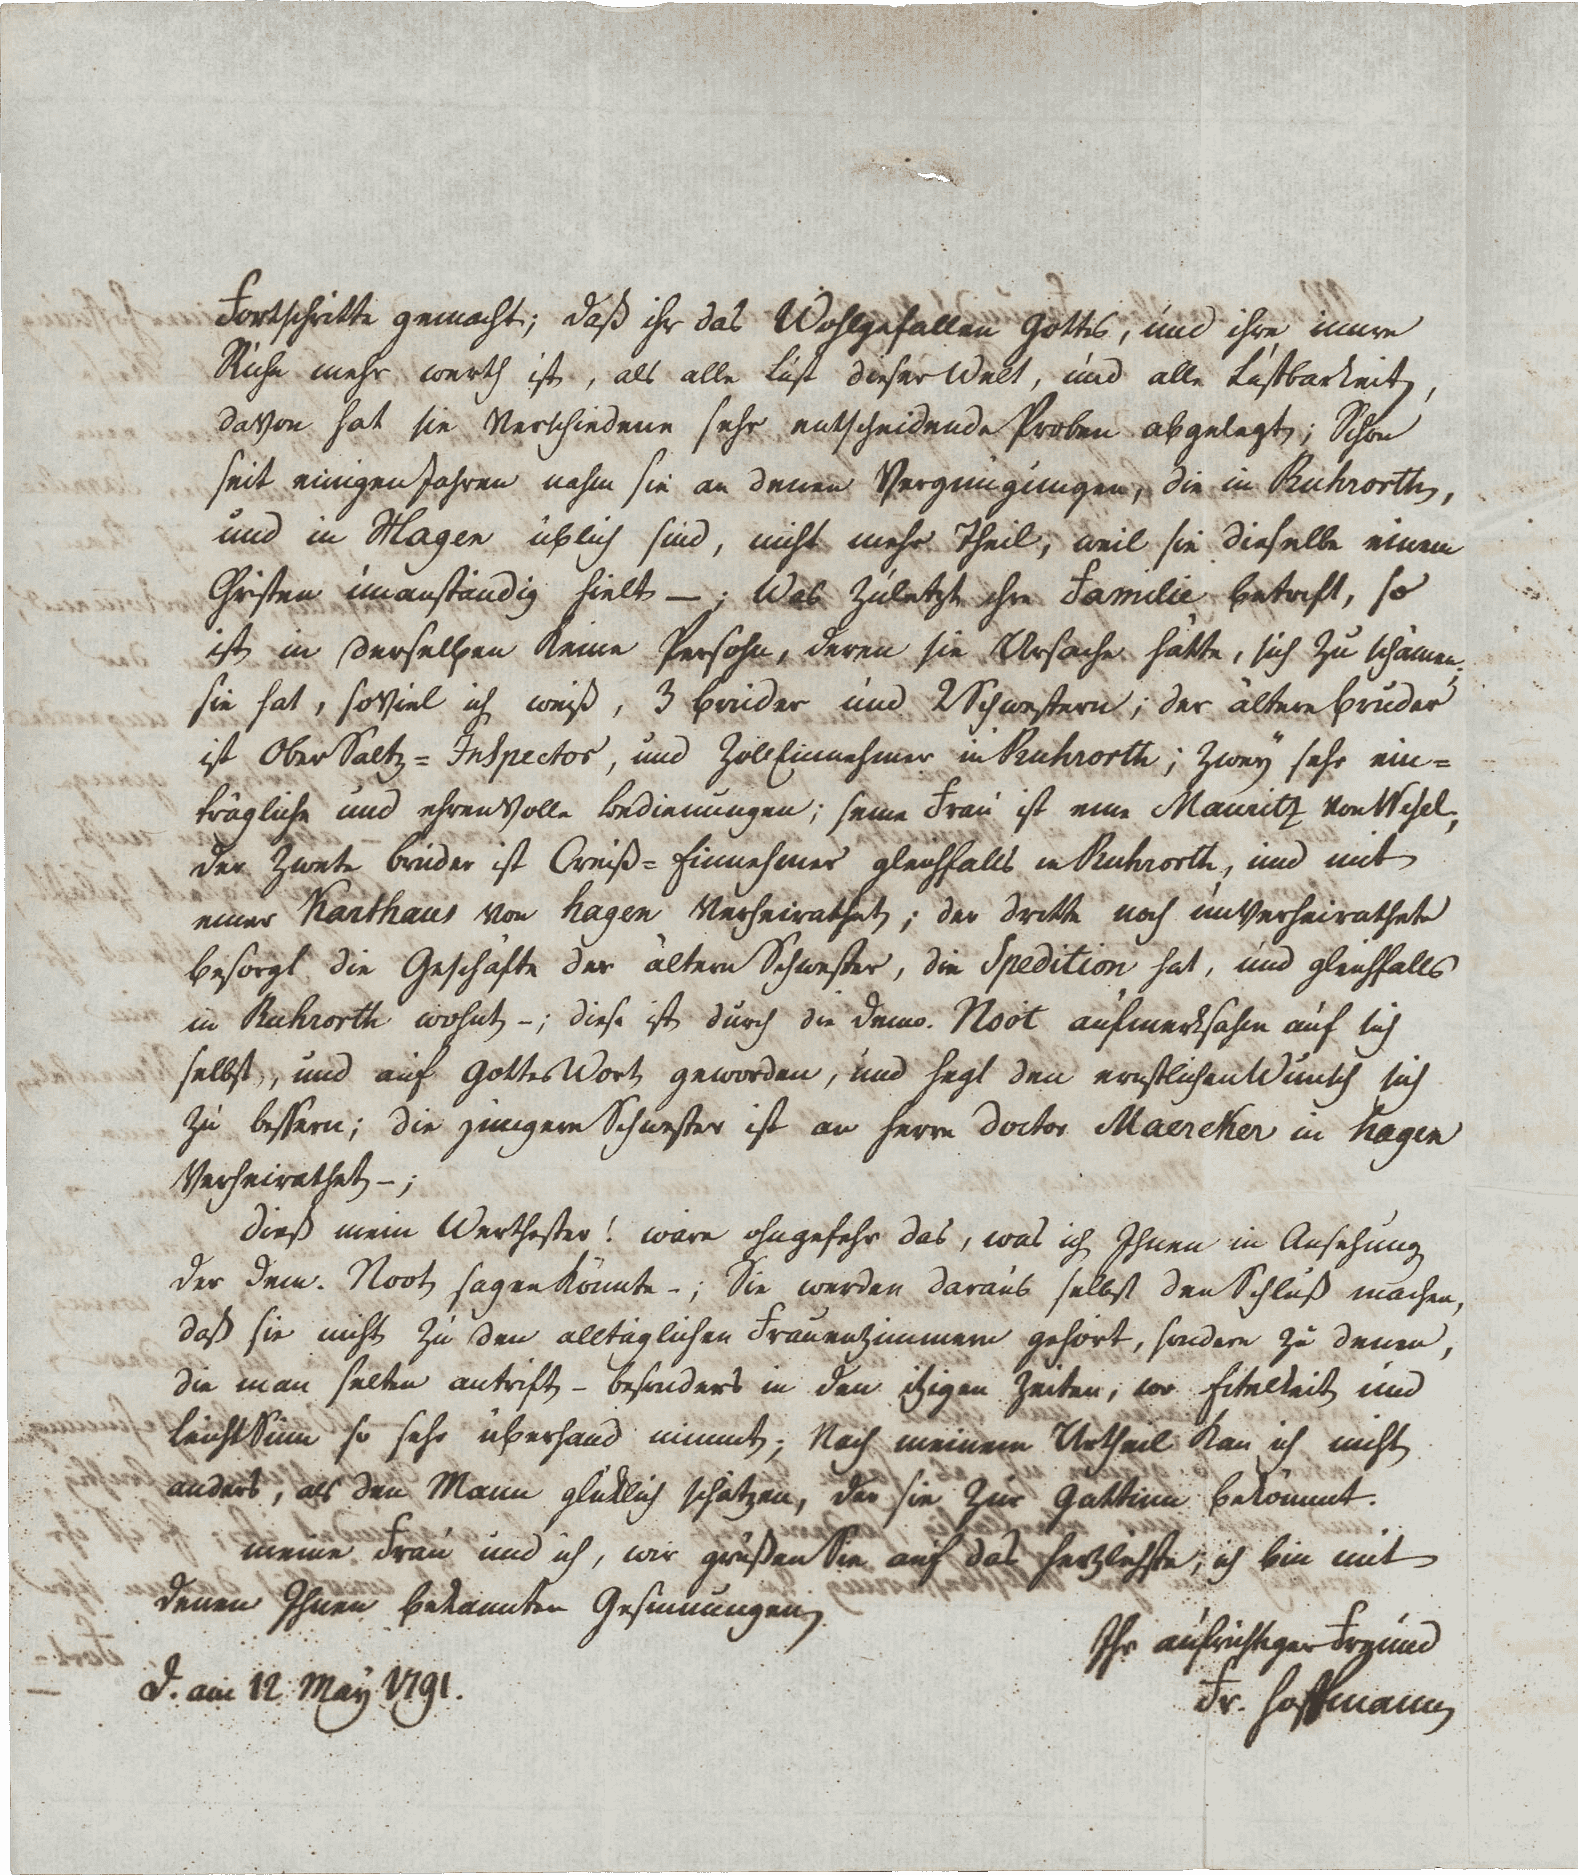 Fortschritte gemacht; daß ihr das Wohlgefallen Gottes, und ihre innre
Ruhe mehr werth ist, als alle Lust dieser Welt, und alle Lustbarkeit,
davon hat sie verschiedene sehr entscheidende Proben abgelegt; Schon
seit einigen Jahren nahm sie an denen Vergnügungen, die in Ruhrorth,
und in Hagen üblich sind, nicht mehr Theil, weil sie dieselbe einem
Christen unanständig hielt —; Was zuletzt ihre Familie betrift, so
ist in derselben keine Persohn, deren sie Ursache hätte, sich zu schämen;
sie hat, soviel ich weiß, 3 brüder und 2 Schwestern; der ältere bruder
ist Ober Saltz=Inspector, und Zoll Einnehmer in Ruhrorth; zwey sehr ein=
trägliche und ehrenvolle bedienungen; seine Frau ist eine Mauritz von Wesel;
der zweite bruder ist Creiß=Einnehmer gleichfalls in Ruhrorth, und mit
einer Karthaus von Hagen verheirathet; der dritte noch unverheirathete
besorgt die Geschäfte der ältern Schwester, die Spedition hat, und gleichfalls
in Ruhrorth wohnt -; diese ist durch die Demo. Noot aufmerksahm auf sich
selbst, und auf Gottes Wort geworden, und hegt den ernstlichen Wunsch sich
zu bessern; die jüngere Schwester ist an Herrn Doctor Maercker in Hagen
verheirathet -;
Dieß mein Werthester! wäre ohngefehr das, was ich Ihnen in Ansehung
der Dem. Noot sagen könnte -; Sie werden daraus selbst den Schluß machen,
daß sie nicht zu den alltäglichen Frauenzimmern gehört, sondern zu denen,
die man selten antrift - besonders in den itzigen Zeiten, wo Eitelkeit und
leicht Sinn so sehr überhand nimmt; Nach meinem Urtheil kan ich nicht
anders, als den Mann glüklich schätzen, der sie zur Gattinn bekömmt.
meine Frau und ich, wir grüßen Sie auf das herzlichste; ich bin mit
denen Ihnen bekannten Gesinnungen
Ihr aufrichtiger Freund
D. am 12 May 1791.
Fr. Hoffmann